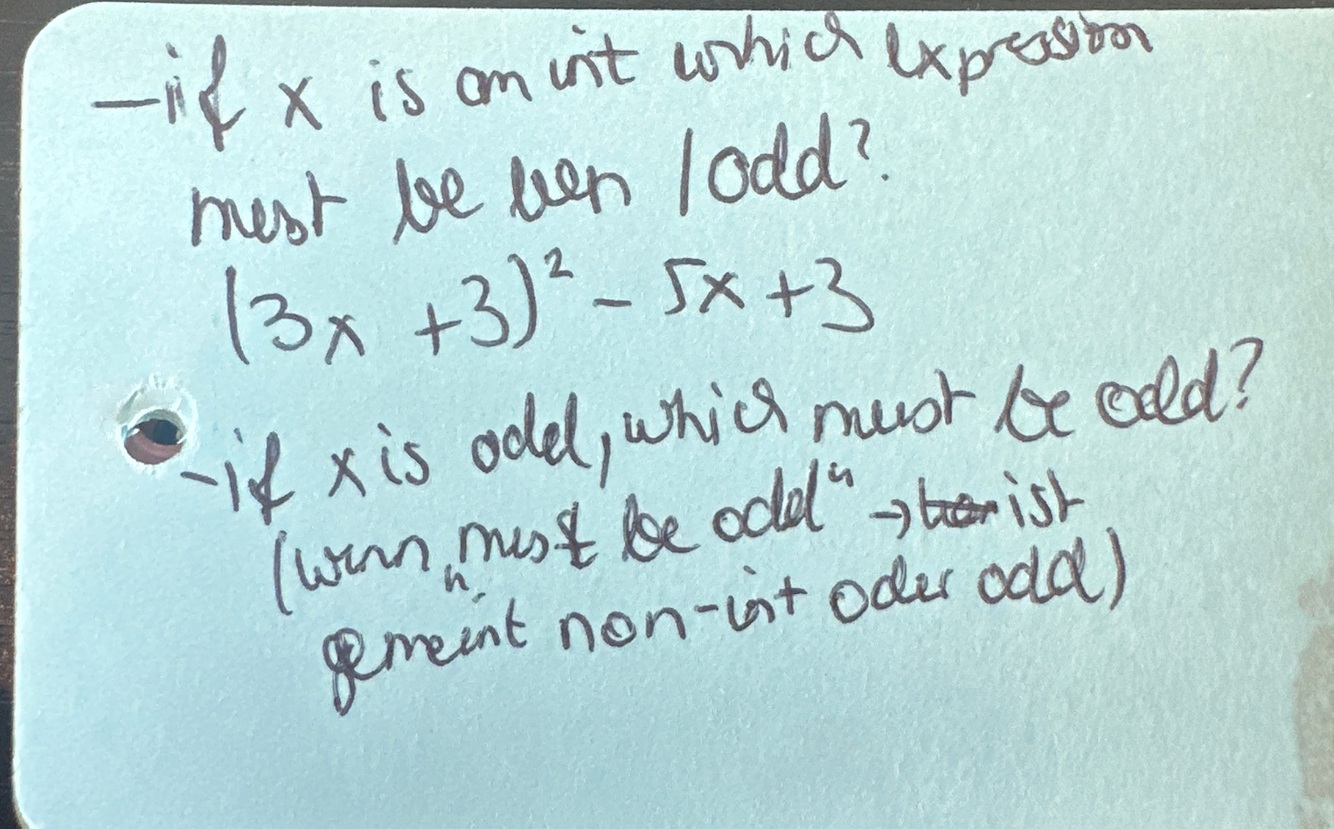 - if x is an int which expression
must be even / odd?
(3x + 3)² - 5x + 3
- if x is odd, which must be odd?
(wenn „must be odd“ → ist
gemeint non-int oder odd)